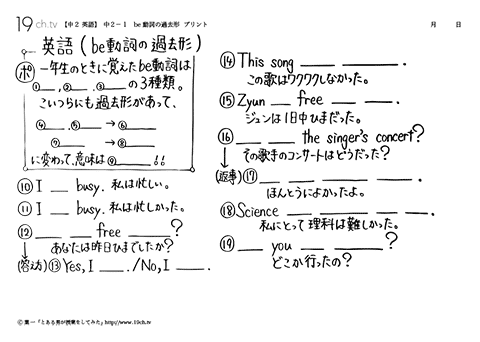 19ch.tv 【中2 英語】 中2-1 be動詞の過去形 プリント 月 日
英語(be動詞の過去形)
ポ 一年生のときに覚えたbe動詞は
①___, ②___, ③___の3種類。
こいつらにも過去形があって、
④___, ⑤___ → ⑥___
⑦___ → ⑧___
に変わって、意味は⑨___!!
⑩ I ___ busy. 私は忙しい。
⑪ I ___ busy. 私は忙しかった。
⑫ ___ ___ free ___?
あなたは昨日ひまでしたか?
(答え方) ⑬ Yes, I ___. / No, I ___.
⑭ This song ___ ___ ___.
この歌はワクワクしなかった。
⑮ Zyun ___ free ___ ___.
ジュンは1日中ひまだった。
⑯ ___ ___ the singer's concert?
その歌手のコンサートはどうだった?
(返事) ⑰ ___ ___ ___ ___.
ほんとうによかったよ。
⑱ Science ___ ___ ___ ___.
私にとって理科は難しかった。
⑲ ___ you ___ ___?
どこか行ったの?
© 葉一「とある男が授業をしてみた」http://www.19ch.tv